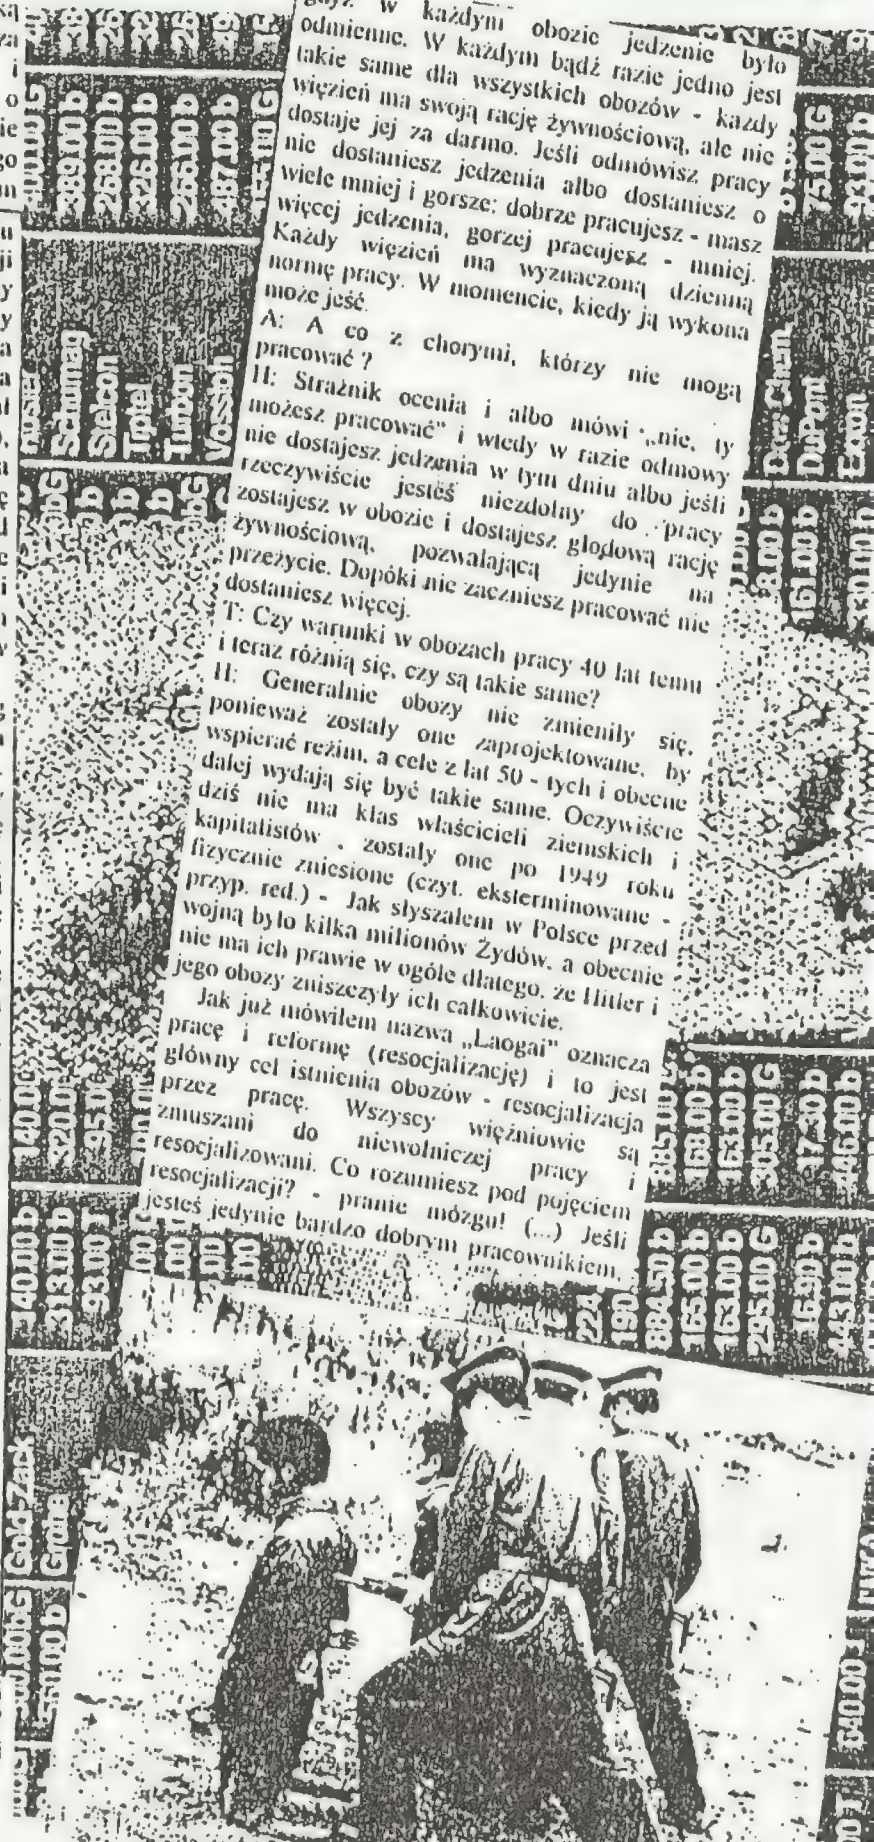 gdyż w każdym obozie jedzenie było
odmienne. W każdym bądź razie jedno jest
takie same dla wszystkich obozów - każdy
więzień ma swoją rację żywnościową, ale nie
dostaje jej za darmo. Jeśli odmówisz pracy
nie dostaniesz jedzenia albo dostaniesz o
wiele mniej i gorsze: dobrze pracujesz - masz
więcej jedzenia, gorzej pracujesz - mniej.
Każdy więzień ma wyznaczoną dzienną
normę pracy. W momencie, kiedy ją wykona
może jeść.
A: A co z chorymi, którzy nie mogą
pracować ?
H: Strażnik ocenia i albo mówi „nie, ty
możesz pracować" i wtedy w razie odmowy
nie dostajesz jedzenia w tym dniu albo jeśli
rzeczywiście jesteś niezdolny do pracy
zostajesz w obozie i dostajesz głodową rację
żywnościową, pozwalającą jedynie na
przeżycie. Dopóki nie zaczniesz pracować nie
dostaniesz więcej.
T: Czy warunki w obozach pracy 40 lat temu
i teraz różnią się, czy są takie same?
H: Generalnie obozy nie zmieniły się,
ponieważ zostały one zaprojektowane, by
wspierać reżim, a cele z lat 50 - tych i obecne
dalej wydają się być takie same. Oczywiście
dziś nie ma klas właścicieli ziemskich i
kapitalistów , zostały one po 1949 roku
fizycznie zniesione (czyt. eksterminowane -
przyp. red.) - Jak słyszałem w Polsce przed
wojną było kilka milionów Żydów, a obecnie
nie ma ich prawie w ogóle dlatego, że Hitler i
jego obozy zniszczyły ich całkowicie.
Jak już mówiłem nazwa „Laogai" oznacza
pracę i reformę (resocjalizację) i to jest
główny cel istnienia obozów - resocjalizacja
przez pracę. Wszyscy więźniowie są
zmuszani do niewolniczej pracy i
resocjalizowani. Co rozumiesz pod pojęciem
resocjalizacji? - pranie mózgu! (...) Jeśli
jesteś jedynie bardzo dobrym pracownikiem,
389.00 b
268.00 b
326.00 b
266.00 b
487.00 b
Schumag
Stelcon
Triptel
Turbon
Vossloh
75.00 G
93.00 b
Dow Chem.
DuPont
Exxon
161.00 b
130.00 b
140.00
320.0
95.0
140.00 b
313.00 b
93.00
Gold-Zack
885.00 b
168.00 b
163.00 b
305.00 G
17.30 b
446.00 b
224
190
884.50 b
165.00 b
163.00 b
295.00 G
16.90 b
443.00 b
340.00